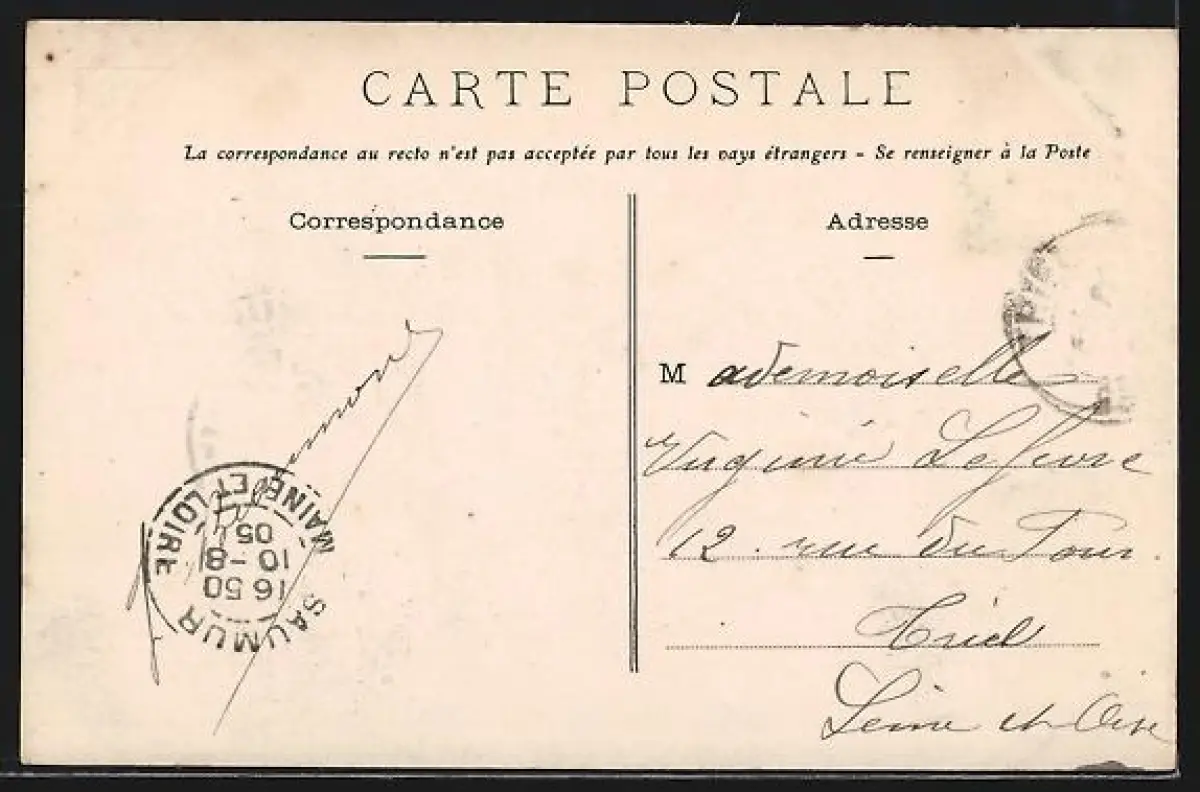 CARTE POSTALE
La correspondance au recto n'est pas acceptée par tous les pays étrangers - Se renseigner à la Poste
Correspondance
Adresse
Mademoiselle
Virginie Lefevre
12. rue du Four
Triel
Seine et Oise
MAINE ET LOIRE
05
10-8
16 50
SAUMUR